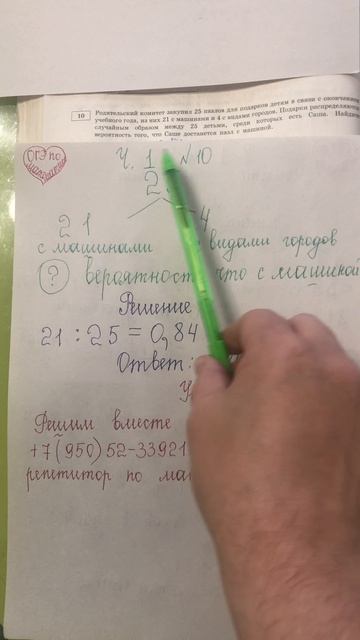 10 Родительский комитет закупил 25 пазлов для подарков детям в связи с окончанием
учебного года, из них 21 с машинами и 4 с видами городов. Подарки распределяются
случайным образом между 25 детьми, среди которых есть Саша. Найдите
вероятность того, что Саше достанется пазл с машиной.
ОГЭ по
математике
Ч. 1 №10
2
21 4
с машинами видами городов
? вероятность что с машиной
Решение
21 : 25 = 0,84
Ответ:
Решим вместе
+7(950)52-33921
репетитор по